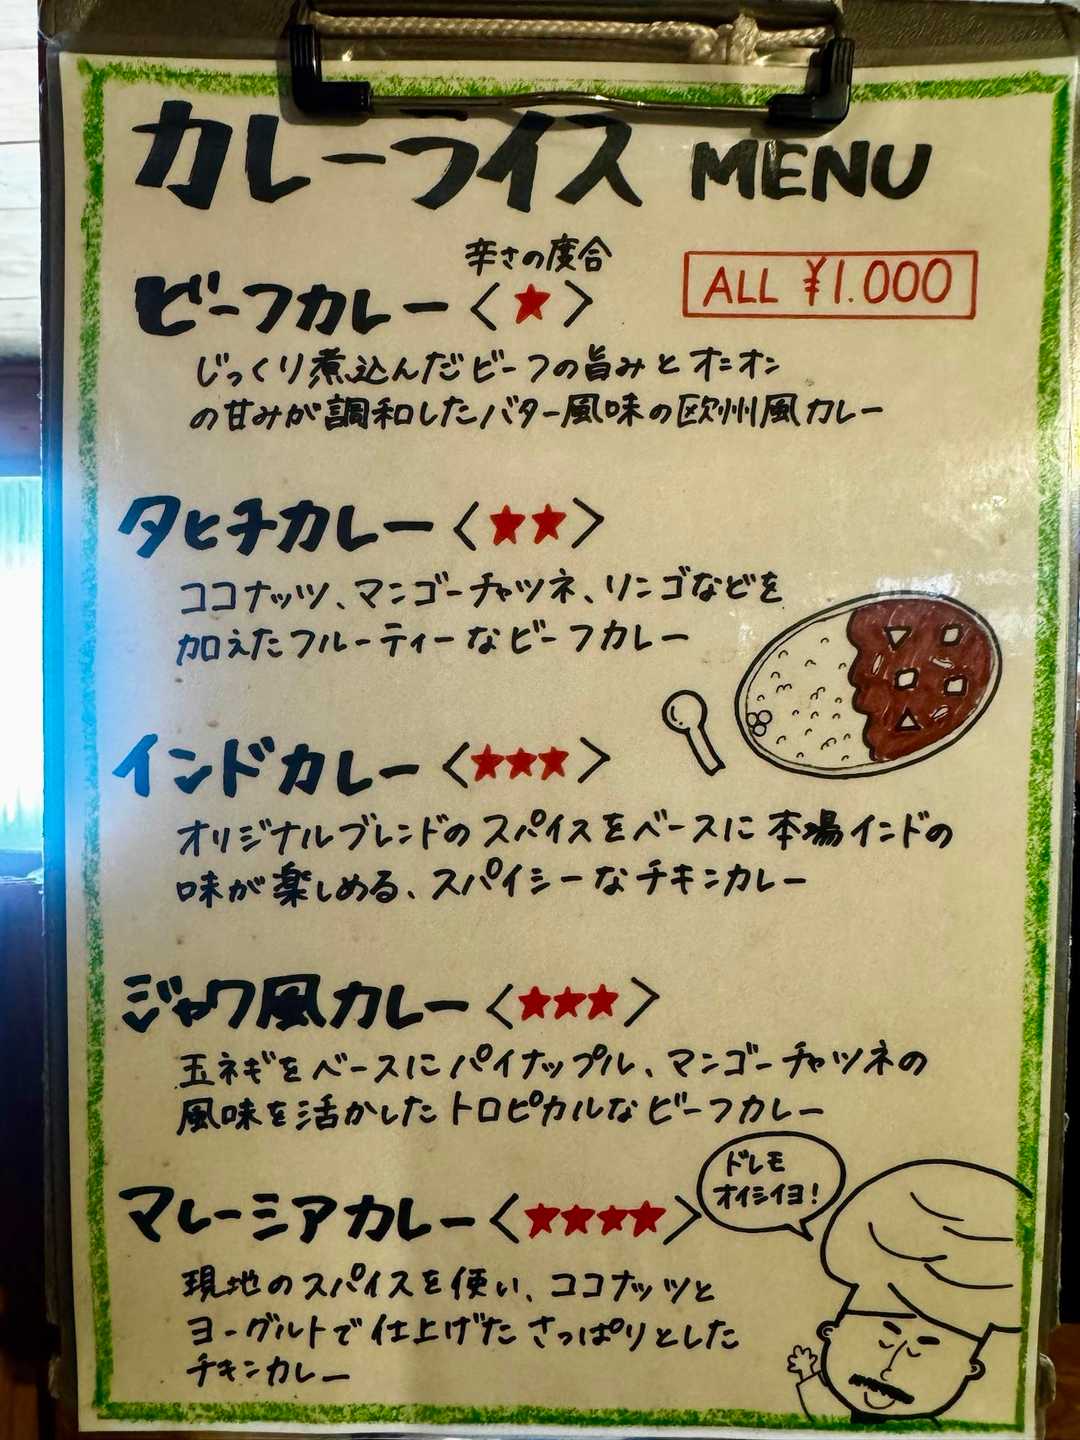 カレーライス MENU
辛さの度合
ALL ¥1.000
ビーフカレー〈★〉
じっくり煮込んだビーフの旨みとオニオン
の甘みが調和したバター風味の欧州風カレー
タヒチカレー〈★★〉
ココナッツ、マンゴーチャツネ、リンゴなどを
加えたフルーティーなビーフカレー
インドカレー〈★★★〉
オリジナルブレンドのスパイスをベースに本場インドの
味が楽しめる、スパイシーなチキンカレー
ジャワ風カレー〈★★★〉
玉ネギをベースにパイナップル、マンゴーチャツネの
風味を活かしたトロピカルなビーフカレー
マレーシアカレー〈★★★★〉
ドレモ
オイシイヨ!
現地のスパイスを使い、ココナッツと
ヨーグルトで仕上げたさっぱりとした
チキンカレー